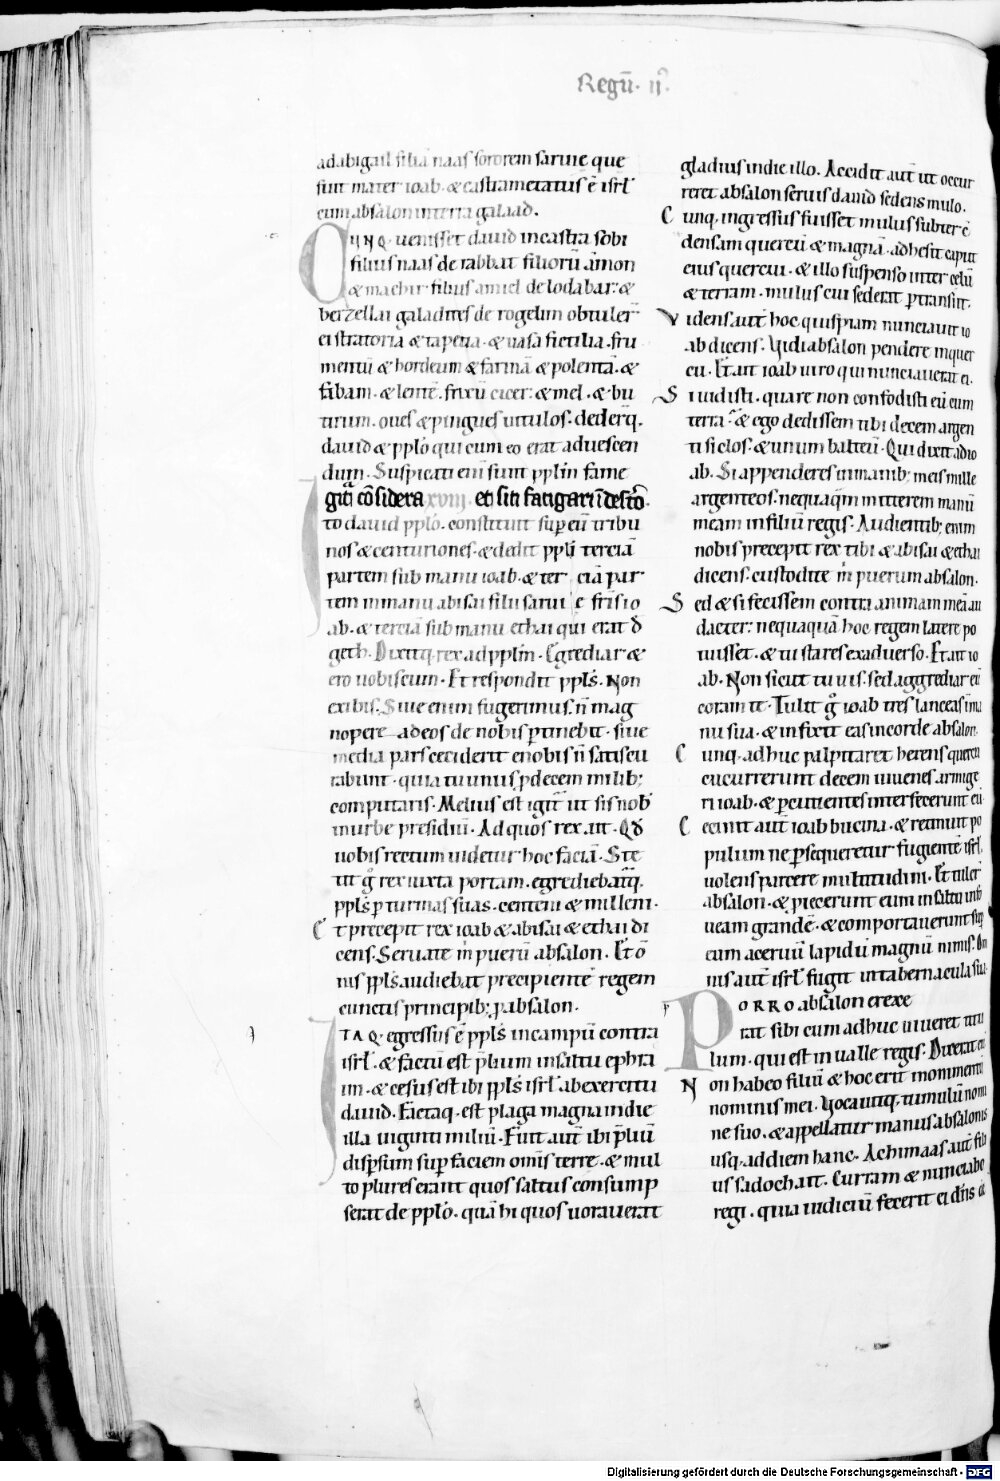 Regū. ii.
ad abigail filiā naas sororem saruie que
fuit mater ioab. & castrametatus ē isrl̄
cum absalon in terra galaad.
CUMQ. uenisset dauid in castra sobi
filius naas de rabbat filiorū amon
& machir filius amiel de lodabar: &
berzellai galadites de rogelim obtuler̄
ei stratoria & tapetia. & uasa fictilia. fru
mentū & hordeum & farinā & polentā. &
fabam. & lentē. frixū cicer. & mel. & bu
tirum. oues & pingues uitulos. dederq̄.
dauid & pplo qui cum eo erat ad uescen
dum. Suspicati eni sunt pplm̄ fame
Igit̄ cōsidera xviii. et siti fatigari ī des̄to.
to dauid pplo. constituit sup eū tribu
nos & centuriones. & dedit ppli terciā
partem sub manu ioab. & ter ciā par
tem in manu abisai filii saruie fr̄is io
ab. & terciā sub manu ethai qui erat d̄
geth. Dixitq. rex ad pplm̄. Egrediar &
ero uobiscum. Et respondit ppls̄. Non
exibis. Siue enim fugerimus. n̄ mag
nopere ad eos de nobis ptinebit. siue
media pars ceciderit e nobis n̄ satis cu
rabunt. quia tu unus p decem milib;
computaris. Melius est igit̄ ut sis nob̄
in urbe presidiū. Ad quos rex ait. Qd̄
uobis rectum uidetur hoc faciā. Ste
tit g̊ rex iuxta portam. egrediebat̄q.
ppls̄ p turmas suas. centeni & milleni.
Et precepit rex ioab & abisai & ethai di
cens. Seruate m̄ puerū absalon. Et ō
nis ppls̄ audiebat precipientē regem
cunctis principib; p absalon.
ITAQ. egressus ē ppls̄ in campū contra
isrl̄. & factū est p̄lium in saltu ephra
im. & cesus est ibi ppls̄ isrl̄ ab exercitu
dauid. Factaq. est plaga magna in die
illa uiginti miliū. Fuit aut̄ ibi p̄liū
dispsum sup faciem omīs terre. & mul
to plures erant quos saltus consump
serat de pplo. quā hi quos uorauerat
gladius in die illo. Accidit aut̄ ut occur
reret absalon seruis dauid sedens mulo.
Cunq. ingressus fuisset mulus subter ē
densam quercū & magnā. adhesit caput
eius quercui. & illo suspenso inter celū
& terram. mulus cui sederat ptransiit.
Videns aut̄ hoc quispiam nunciauit io
ab dicens. Vidi absalon pendere in quer
cu. Et ait ioab uiro qui nunciauerat ei.
Si uidisti. quare non confodisti eū cum
terra. & ego dedissem tibi decem argen
ti siclos. & unum balteū. Qui dixit ad io
ab. Si appenderes in manib; meis mille
argenteos. nequaq̄m mitterem manū
meam in filiū regis. Audientib; enim
nobis precepit rex tibi & abisai & ethai
dicens. custodite m̄ puerum absalon.
Sed & si fecissem contra animam meā au
dacter: nequaquā hoc regem latere po
tuisset. & tu stares ex aduerso. Et ait io
ab. Non sicut tu uis. sed aggrediar eū
coram te. Tulit g̊ ioab tres lanceas in ma
nu sua. & infixit eas in corde absalon.
Cunq. adhuc palpitaret herens quercu
cucurrerunt decem iuuenes armige
ri ioab. & pcutientes interfecerunt eū.
Cecinit aut̄ ioab bucina. & retinuit po
pulum ne psequeretur fugientē isrl̄.
uolens parcere multitudini. Et tuler̄
absalon. & p̄iecerunt eum in saltu in fo
ueam grandē. & comportauerunt sup
eum aceruū lapidū magnū nimis. Om
nis aut̄ isrl̄ fugit in tabernacula sua.
PORRO absalon erexe
rat sibi cum adhuc uiueret titu
lum. qui est in ualle regis. Dixerat eī
Non habeo filiū & hoc erit monimentū
nominis mei. Vocauitq. tumulū nomi
ne suo. & appellatur manus absalonis
usq. ad diem hanc. Achimaas aut̄ fili
us sadoch ait. Curram & nunciabo
regi. quia iudiciū fecerit ei dn̄s de
Digitalisierung gefördert durch die Deutsche Forschungsgemeinschaft - DFG